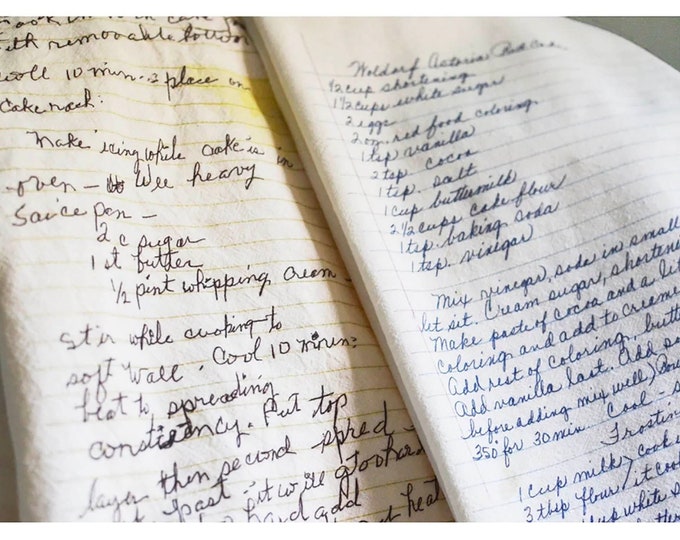 with removable bottom
cool 10 min. & place on
cake rack:
Make icing while cake is in
oven - Use heavy
Sauce pan -
2 c sugar
1 st butter
1/2 pint whipping cream
Stir while cooking to
soft ball. Cool 10 min:
beat to spreading
consistency. Put top
layer then second spred -
fast - it will
add
Woldorf Astoria Red Cake
1/2 cup shortening
1 1/2 cups white sugar
2 eggs
2 oz. red food coloring
1 tsp vanilla
2 tsp. cocoa
1 tsp. salt
1 cup buttermilk
2 1/2 cups cake flour
1 tsp. baking soda
1 tsp. vinegar
Mix vinegar, soda in small
let sit. Cream sugar, shortening
Make paste of cocoa and a
coloring and add to creame
Add rest of coloring, butt
Add vanilla last. Add
before adding mix well)
350° for 30 min. Cool -
Frostin
1 cup milk
3 tbsp flour
cup white